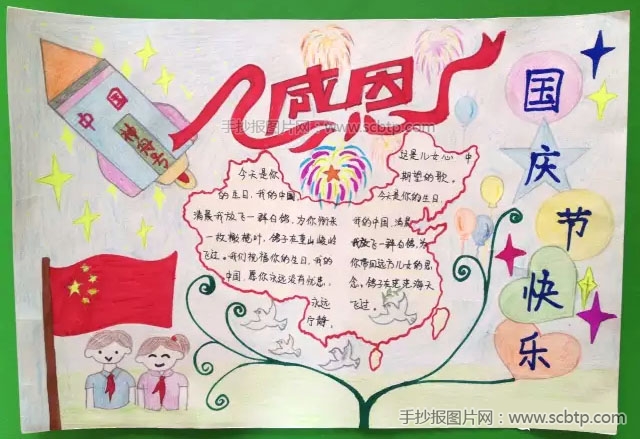 中国
神舟号
感恩
手抄报图片网：www.scbtp.com
今天是你
的生日，我的中国
清晨我放飞一群白鸽，为你衔来
一枚橄榄叶，鸽子在崇山峻岭
飞过。我们祝福你的生日，我的
中国，愿你永远没有忧患，
永远
宁静。
这是儿女心中
期望的歌。
今天是你的生日，
我的中国，清晨
我放飞一群白鸽，为
你带回远方儿女的思
念。鸽子在茫茫海天
飞过。
国庆节快乐
手抄报图片网：www.scbtp.com